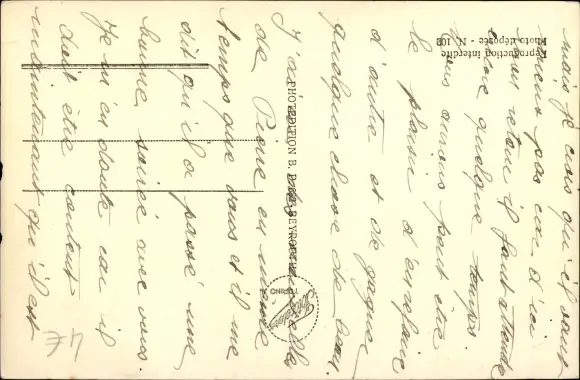 mais je crois qu'il vaut
mieux pas car d'ici
mon retour il faut attendre
encore quelque temps.
Nous aurons peut être
le plaisir d'en refaire
d'autre et de gagner
quelque chose de beau.
J'ai eu des nouvelles
de Pierre en même
temps que vous et il me
dit qu'il a passé une
bonne soirée avec vous.
Je m'en doute car il
doit être content
maintenant qu'il est
Reproduction interdite
Photo déposée N. - 102
PHOTO-EDITION B. BEYROUTH
TORINO
4€